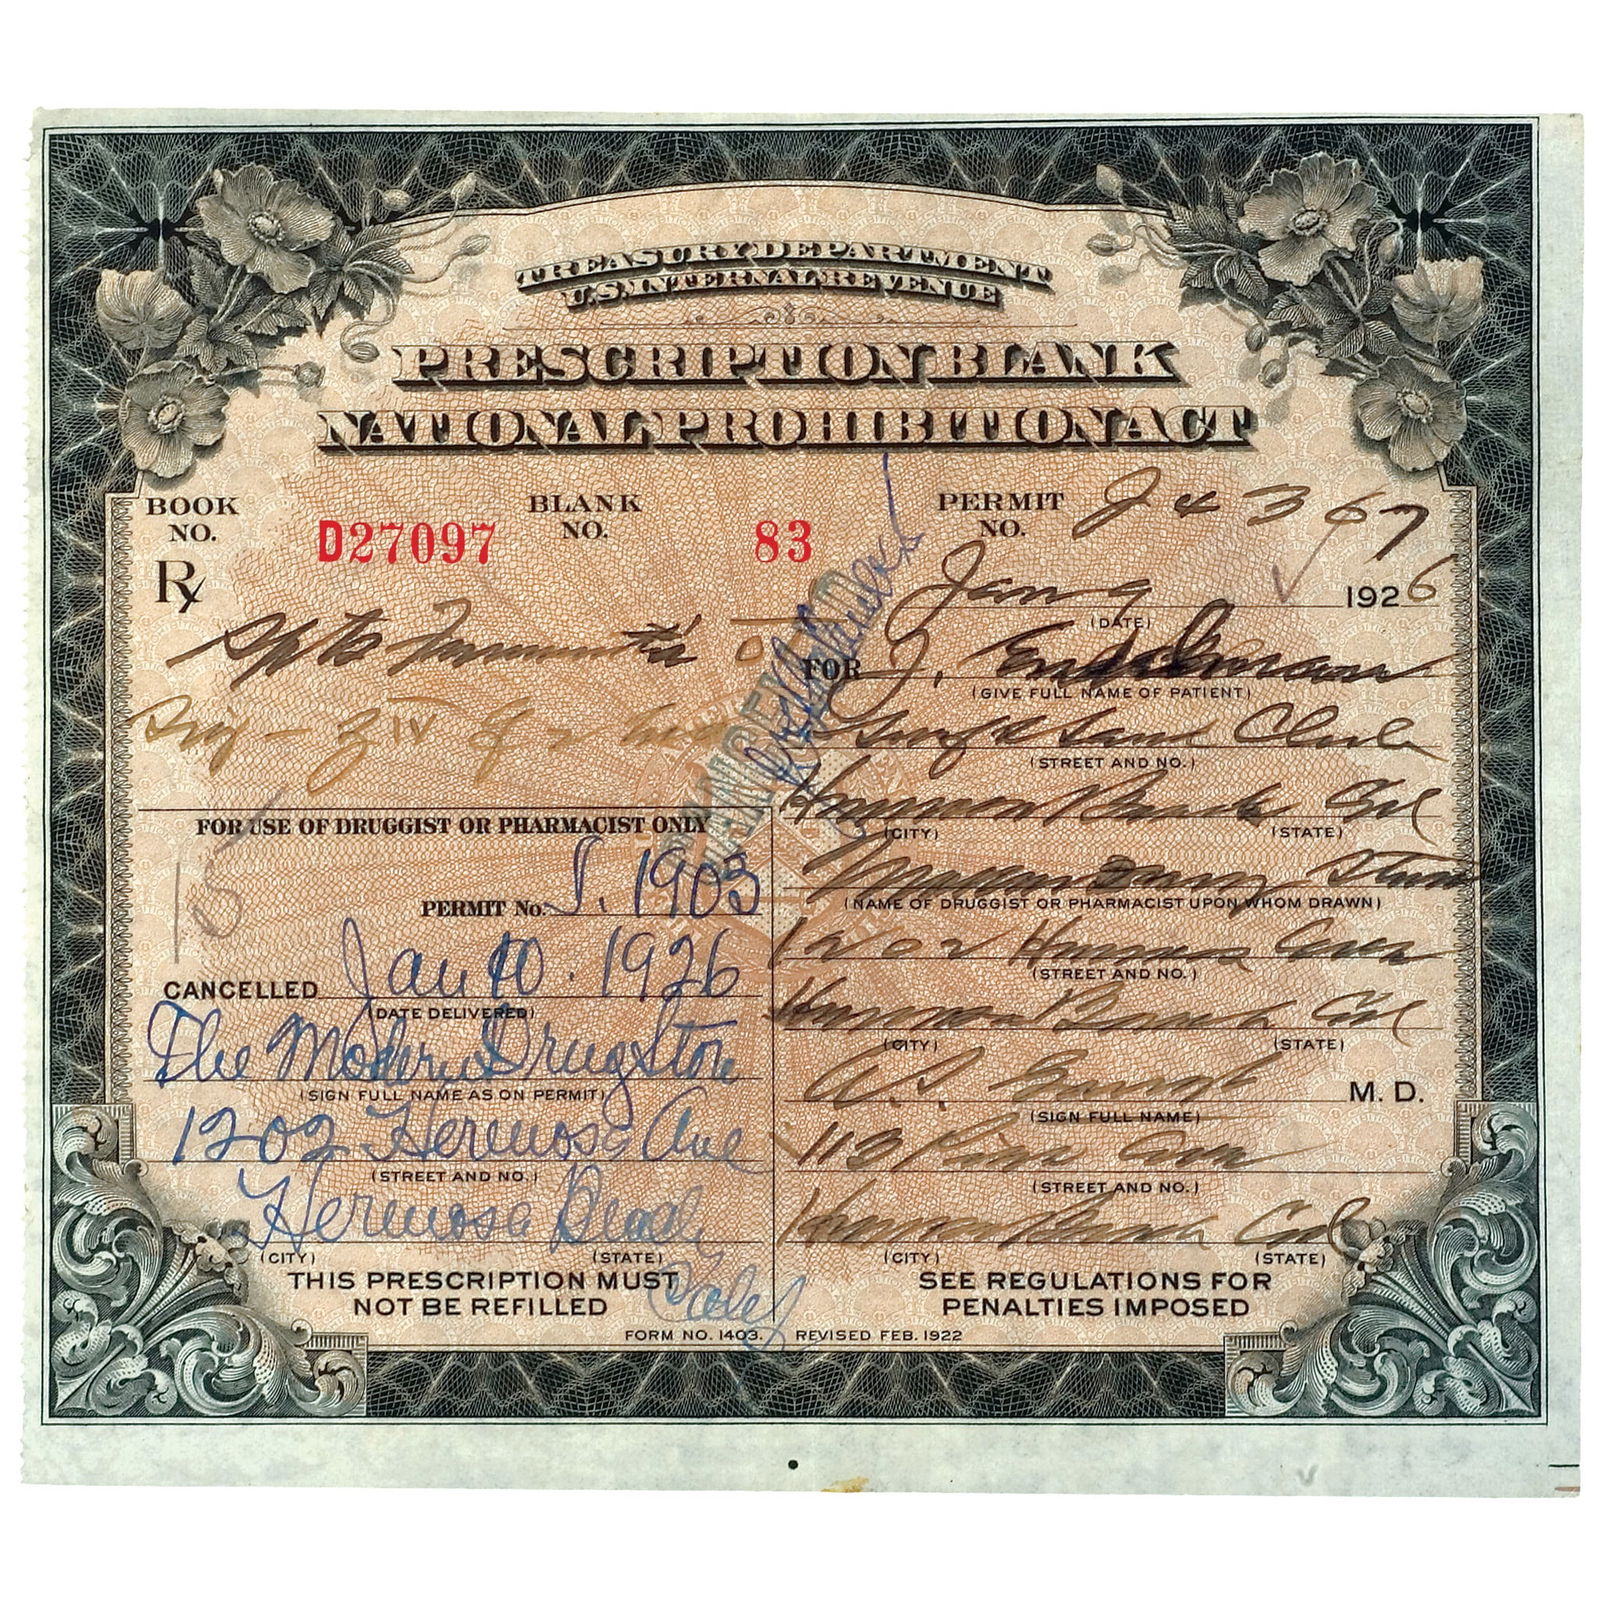 TREASURY DEPARTMENT
U.S. INTERNAL REVENUE
PRESCRIPTION BLANK
NATIONAL PROHIBITION ACT
BOOK NO. D27097 BLANK NO. 83 PERMIT NO. J 4 3 67
Rx
Jan 9 1926
(DATE)
Spts Frumenti
FOR J.
(GIVE FULL NAME OF PATIENT)
Club
(STREET AND NO.)
Hermosa Beach Cal
(CITY) (STATE)
Modern Drug Store
(NAME OF DRUGGIST OR PHARMACIST UPON WHOM DRAWN)
1202 Hermosa Ave
(STREET AND NO.)
Hermosa Beach Cal
(CITY) (STATE)
M. D.
(SIGN FULL NAME)
113 Pier Ave
(STREET AND NO.)
Hermosa Beach Cal
(CITY) (STATE)
SEE REGULATIONS FOR
PENALTIES IMPOSED
CANCELLED
15
FOR USE OF DRUGGIST OR PHARMACIST ONLY
PERMIT No. S. 1903
CANCELLED Jan 10. 1926
(DATE DELIVERED)
The Modern Drug Store
(SIGN FULL NAME AS ON PERMIT)
1202 Hermosa Ave
(STREET AND NO.)
Hermosa Beach
(CITY) (STATE)
Calif
THIS PRESCRIPTION MUST
NOT BE REFILLED
FORM NO. 1403. REVISED FEB. 1922